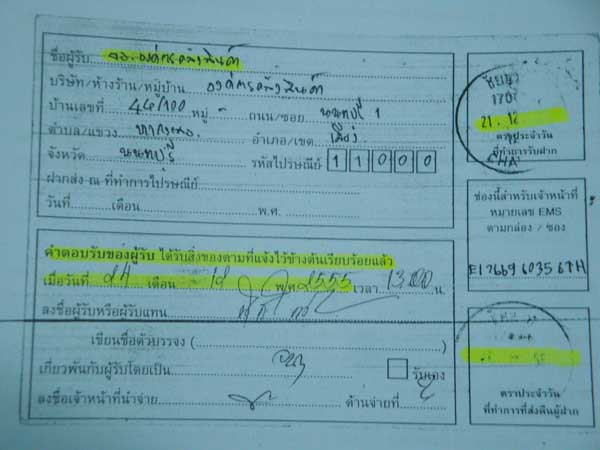 ชื่อผู้รับ ผอ.องค์การคลังสินค้า
บริษัท/ห้างร้าน/หมู่บ้าน องค์การคลังสินค้า
บ้านเลขที่ 44/100 หมู่ ถนน/ซอย นนทบุรี 1
ตำบล/แขวง อำเภอ/เขต เมือง
จังหวัด นนทบุรี รหัสไปรษณีย์ 11000
ฝากส่ง ณ ที่ทำการไปรษณีย์
วันที่ เดือน พ.ศ.
คำตอบรับของผู้รับ ได้รับสิ่งของตามที่แจ้งไว้ข้างต้นเรียบร้อยแล้ว
เมื่อวันที่ 24 เดือน 12 พ.ศ. 2555 เวลา น.
ลงชื่อผู้รับหรือผู้รับแทน
เขียนชื่อตัวบรรจง ( )
เกี่ยวพันกับผู้รับโดยเป็น รับเอง
ลงชื่อเจ้าหน้าที่นำจ่าย ด้านจ่ายที่
21.12
ตราประจำวัน
ที่ทำการรับฝาก
ช่องนี้สำหรับเจ้าหน้าที่
หมายเลข EMS
ตามกล่อง / ซอง
ตราประจำวัน
ที่ทำการที่ส่งคืนผู้ฝาก